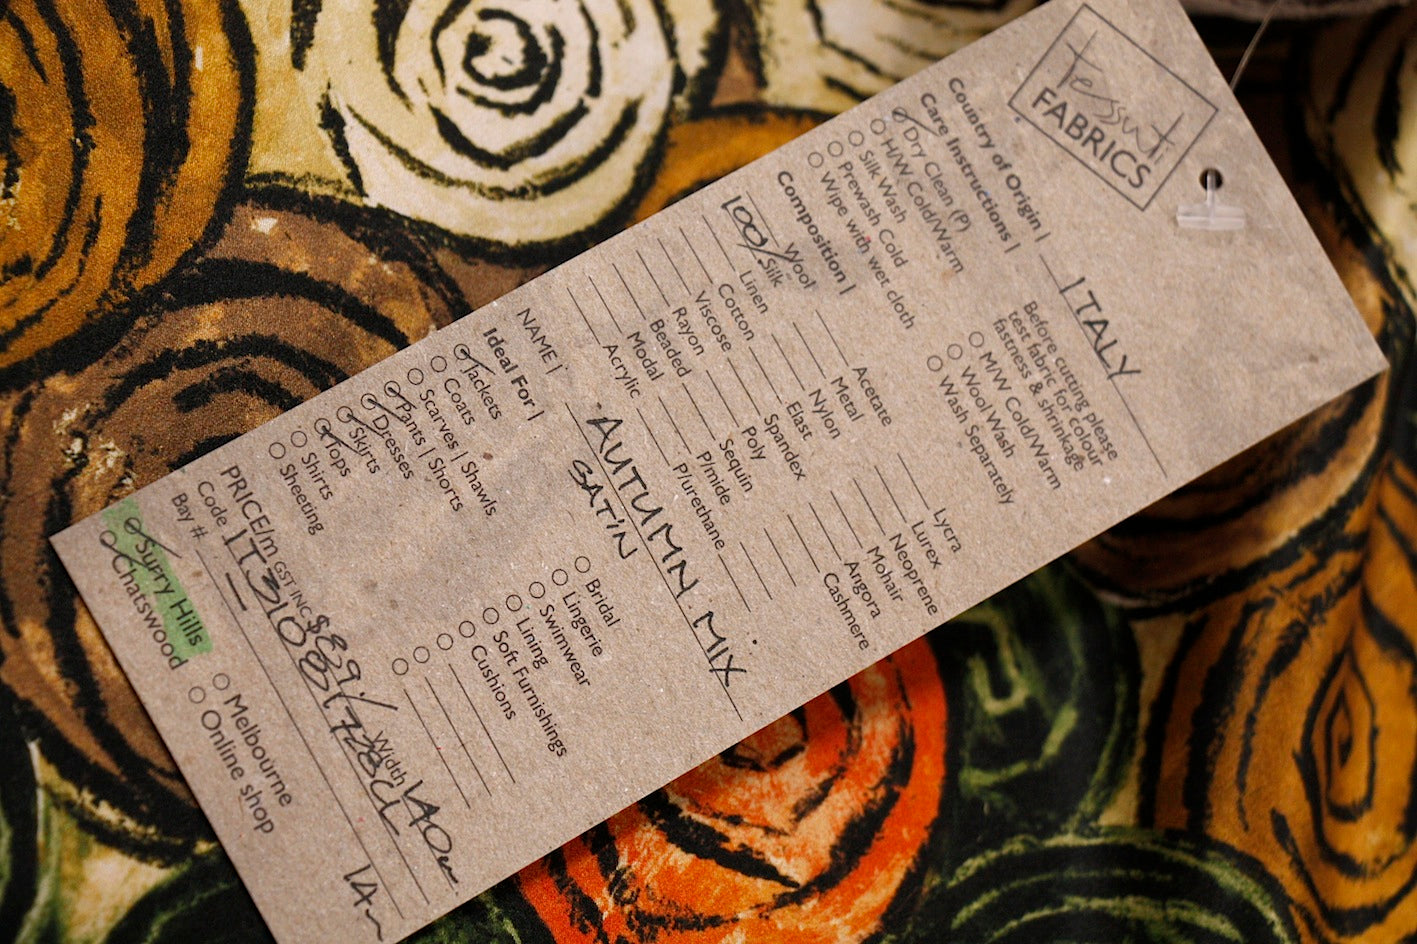 tessuti
FABRICS
Country of Origin | ITALY
Care Instructions |
Dry Clean (P)
H/W Cold/Warm
Silk Wash
Prewash Cold
Wipe with wet cloth
Before cutting please
test fabric for colour
fastness & shrinkage
M/W Cold/Warm
Wool Wash
Wash Separately
Composition |
Wool
100/ Silk
Linen
Cotton
Viscose
Rayon
Beaded
Modal
Acrylic
Acetate
Metal
Nylon
Elast
Spandex
Poly
Sequin
P/mide
P/urethane
Lycra
Lurex
Neoprene
Mohair
Angora
Cashmere
NAME | AUTUMN MIX
SATIN
Ideal For |
Jackets
Coats
Scarves | Shawls
Pants | Shorts
Dresses
Skirts
Tops
Shirts
Sheeting
Bridal
Lingerie
Swimwear
Lining
Soft Furnishings
Cushions
PRICE/m GST INC $89/ Width 140cm
Code
Bay #
Surry Hills
Chatswood
Melbourne
Online shop